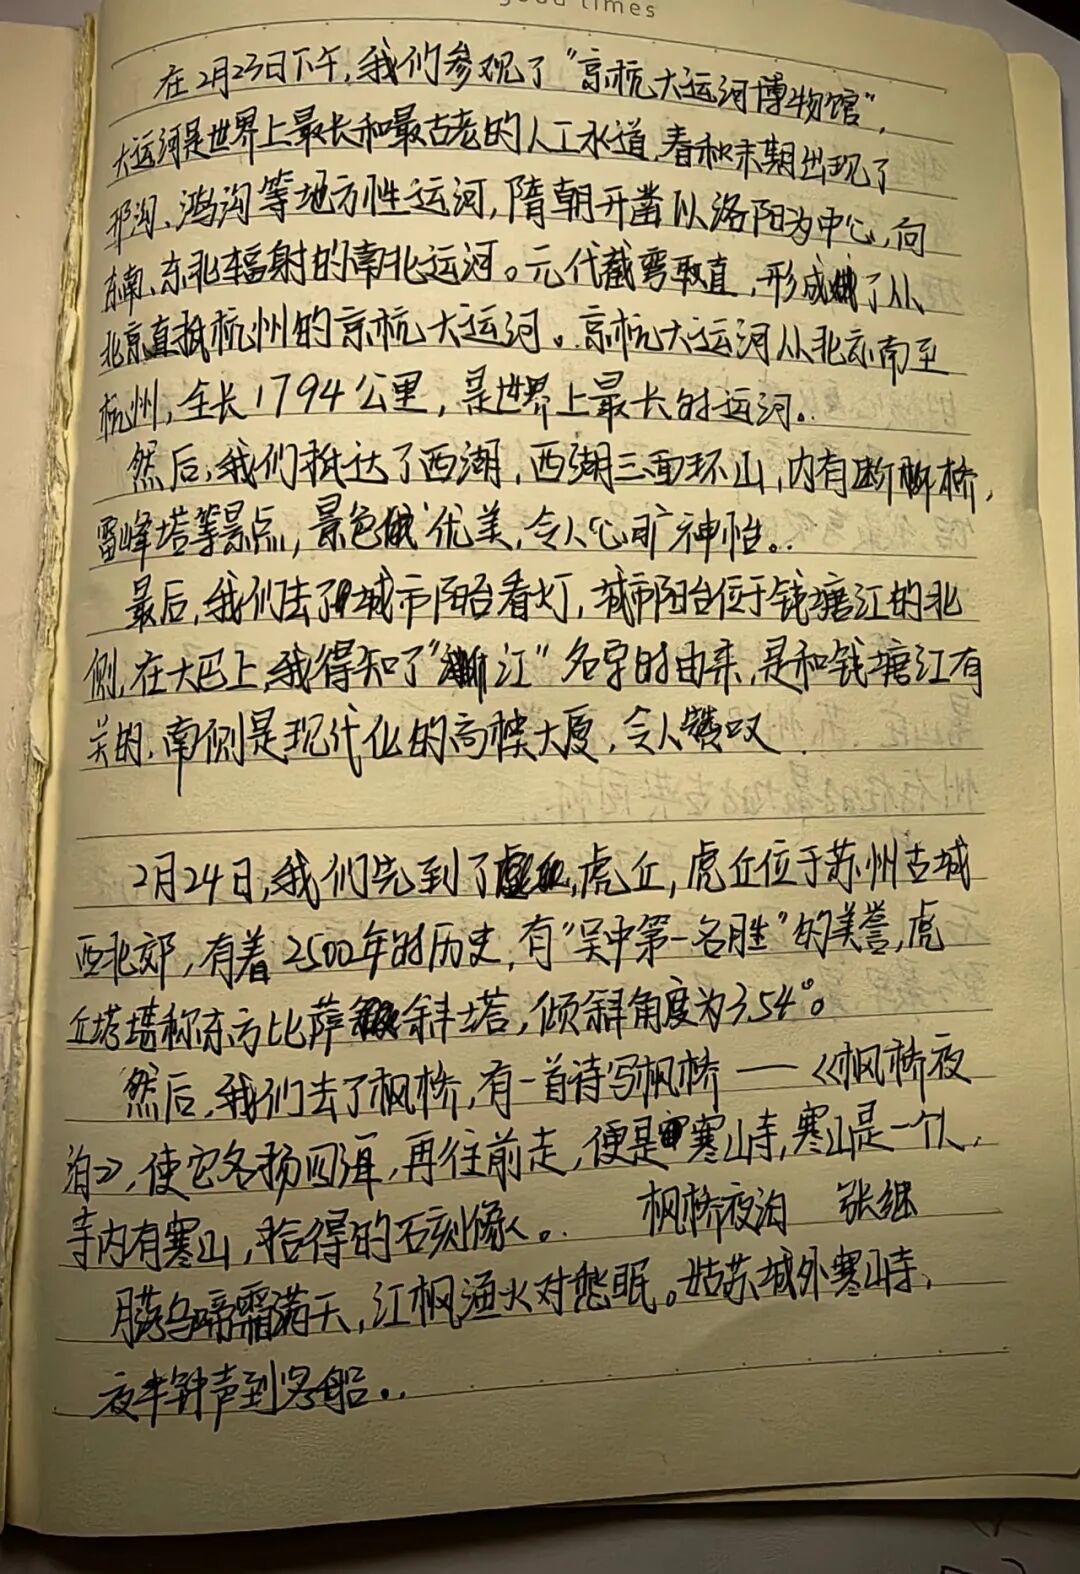 good times
在2月23日下午,我们参观了“京杭大运河博物馆”,
大运河是世界上最长和最古老的人工水道,春秋末期出现了
邗沟、鸿沟等地方性运河,隋朝开凿以洛阳为中心,向
东南、东北辐射的南北运河。元代截弯取直,形成了从
北京直抵杭州的京杭大运河。京杭大运河从北京南至
杭州,全长1794公里,是世界上最长的运河。
然后,我们抵达了西湖,西湖三面环山,内有断桥,
雷峰塔等景点,景色优美,令人心旷神怡。
最后,我们去了城市阳台看灯,城市阳台位于钱塘江的北
侧,在大巴上,我得知了“浙江”名字的由来,是和钱塘江有
关的,南侧是现代化的高楼大厦,令人赞叹
2月24日,我们先到了虎丘,虎丘位于苏州古城
西北郊,有着2500年的历史,有“吴中第一名胜”的美誉,虎
丘塔堪称东方比萨斜塔,倾斜角度为3.54°。
然后,我们去了枫桥,有一首诗写枫桥——《枫桥夜
泊》,使它名扬四海,再往前走,便是寒山寺,寒山是一个人,
寺内有寒山,拾得的石刻像。 枫桥夜泊 张继
月落乌啼霜满天,江枫渔火对愁眠。姑苏城外寒山寺,
夜半钟声到客船。